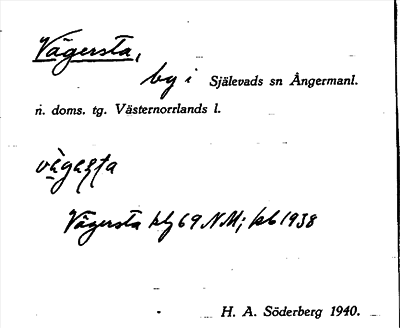 Vägersta,
by i Själevads sn Ångermanl.
n. doms. tg. Västernorrlands l.
Vägersta hlz 69 NM; kb 1938
H. A. Söderberg 1940.